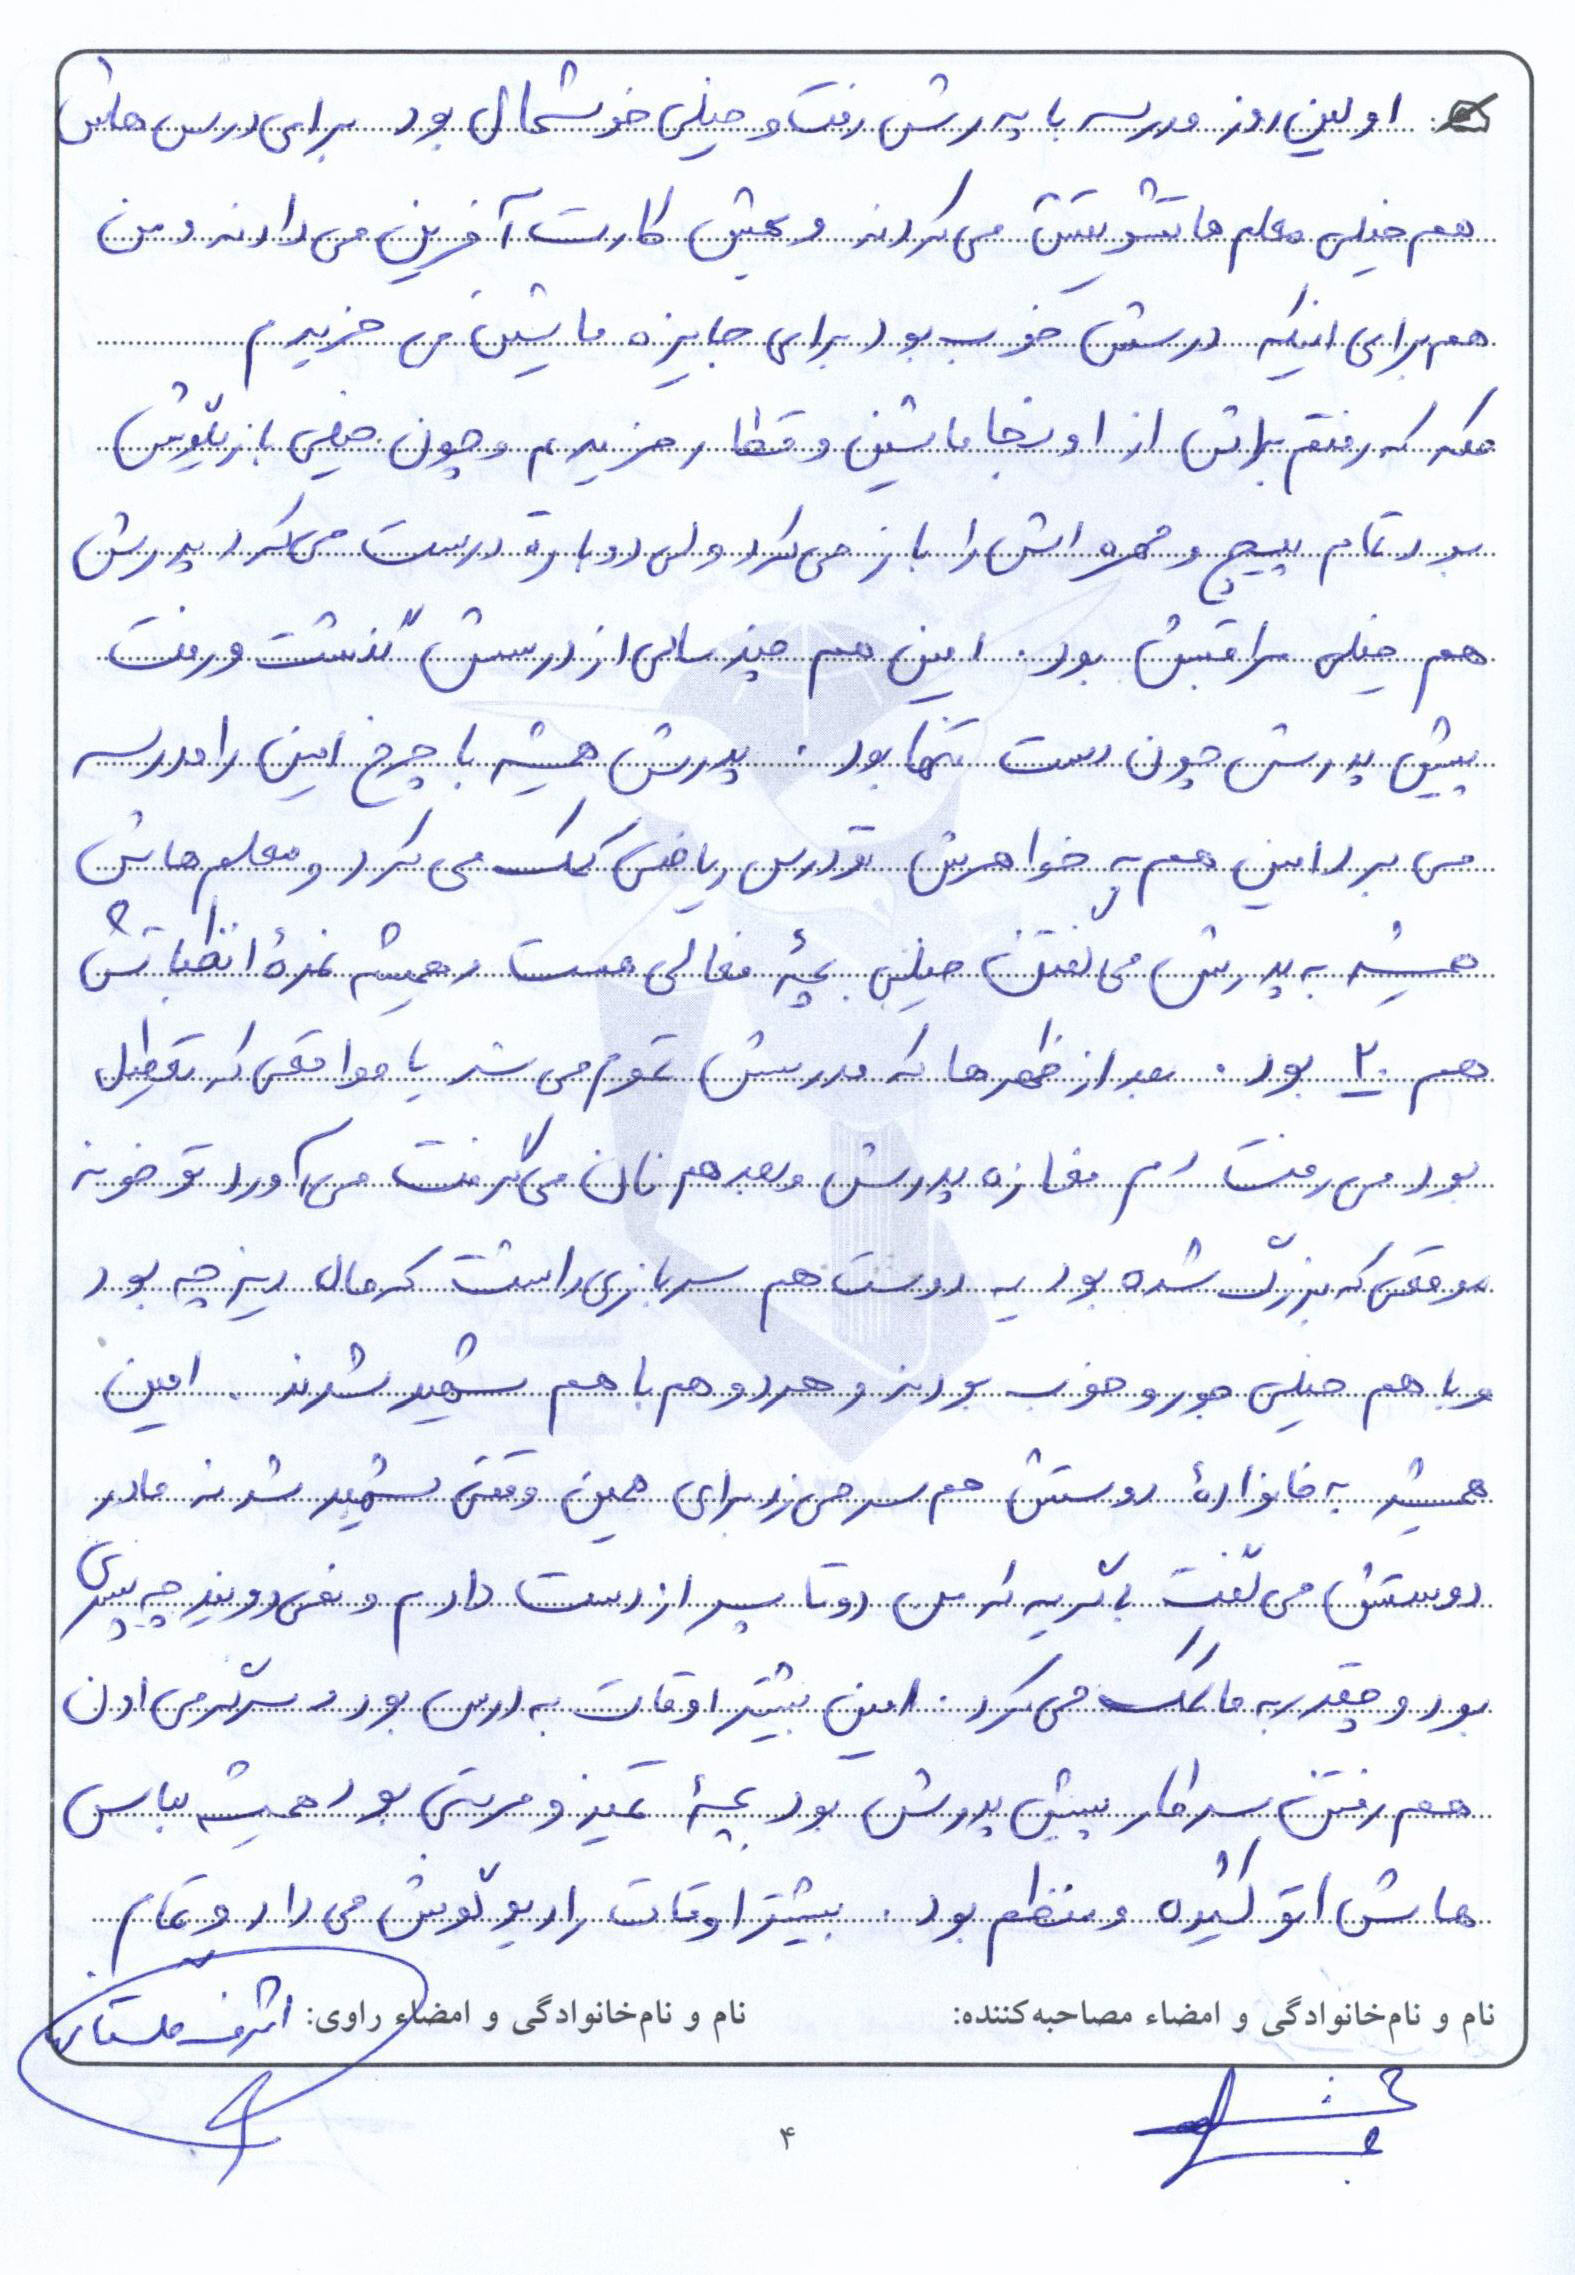 اولین روز مدرسه با پدرش رفت و خیلی خوشحال بود برای درس هاش
هم خیلی معلم ها تشویقش می کردند و بهش کارت آفرین می دادند و من
هم برای اینکه درسش خوب بود برای جایزه ماشین می خریدم
مکه که رفتم براش از اونجا ماشین و قطار خریدم و چون خیلی بازیگوش
بود تمام پیچ و مهره اش را باز می کرد ولی دوباره درست می کرد پدرش
هم خیلی مراقبش بود. امین هم چند سالی از درسش گذشت و رفت
پیش پدرش چون دست تنها بود. پدرش همیشه با چرخ امین را مدرسه
می برد امین هم به خواهرش تو درس ریاضی کمک می کرد و معلم هاش
همیشه به پدرش می گفتن خیلی بچۀ فعالی هست و همیشه نمرۀ انظباتش
هم ۲۰ بود. بعد از ظهرها که مدرسش تموم می شد یا مواقعی که تعطیل
بود می رفت دم مغازه پدرش و بعد هم نان می گرفت می آورد تو خونه
موقعی که بزرگ شده بود یه دوست هم سربازی داشت که مال دیزچه بود
و با هم خیلی جور و خوب بودند و هر دو هم با هم شهید شدند. امین
همیشه به خانوادۀ دوستش هم سر می زد برای همین وقتی شهید شدند مادر
دوستش می گفت با گریه که من دوتا پسر از دست دادم و نمی دونید چه پسری
بود و چقدر به ما کمک می کرد. امین بیشتر اوقات به درس بود و سرگرمی اون
هم رفتن سر کار پیش پدرش بود بچۀ تمیز و مرتبی بود همیشه لباس
هاش اتو کشیده و منظم بود. بیشتر اوقات رادیو گوش می داد و تمام
نام و نام‌خانوادگی و امضاء مصاحبه‌کننده: نام و نام‌خانوادگی و امضاء راوی: اشرف
۴